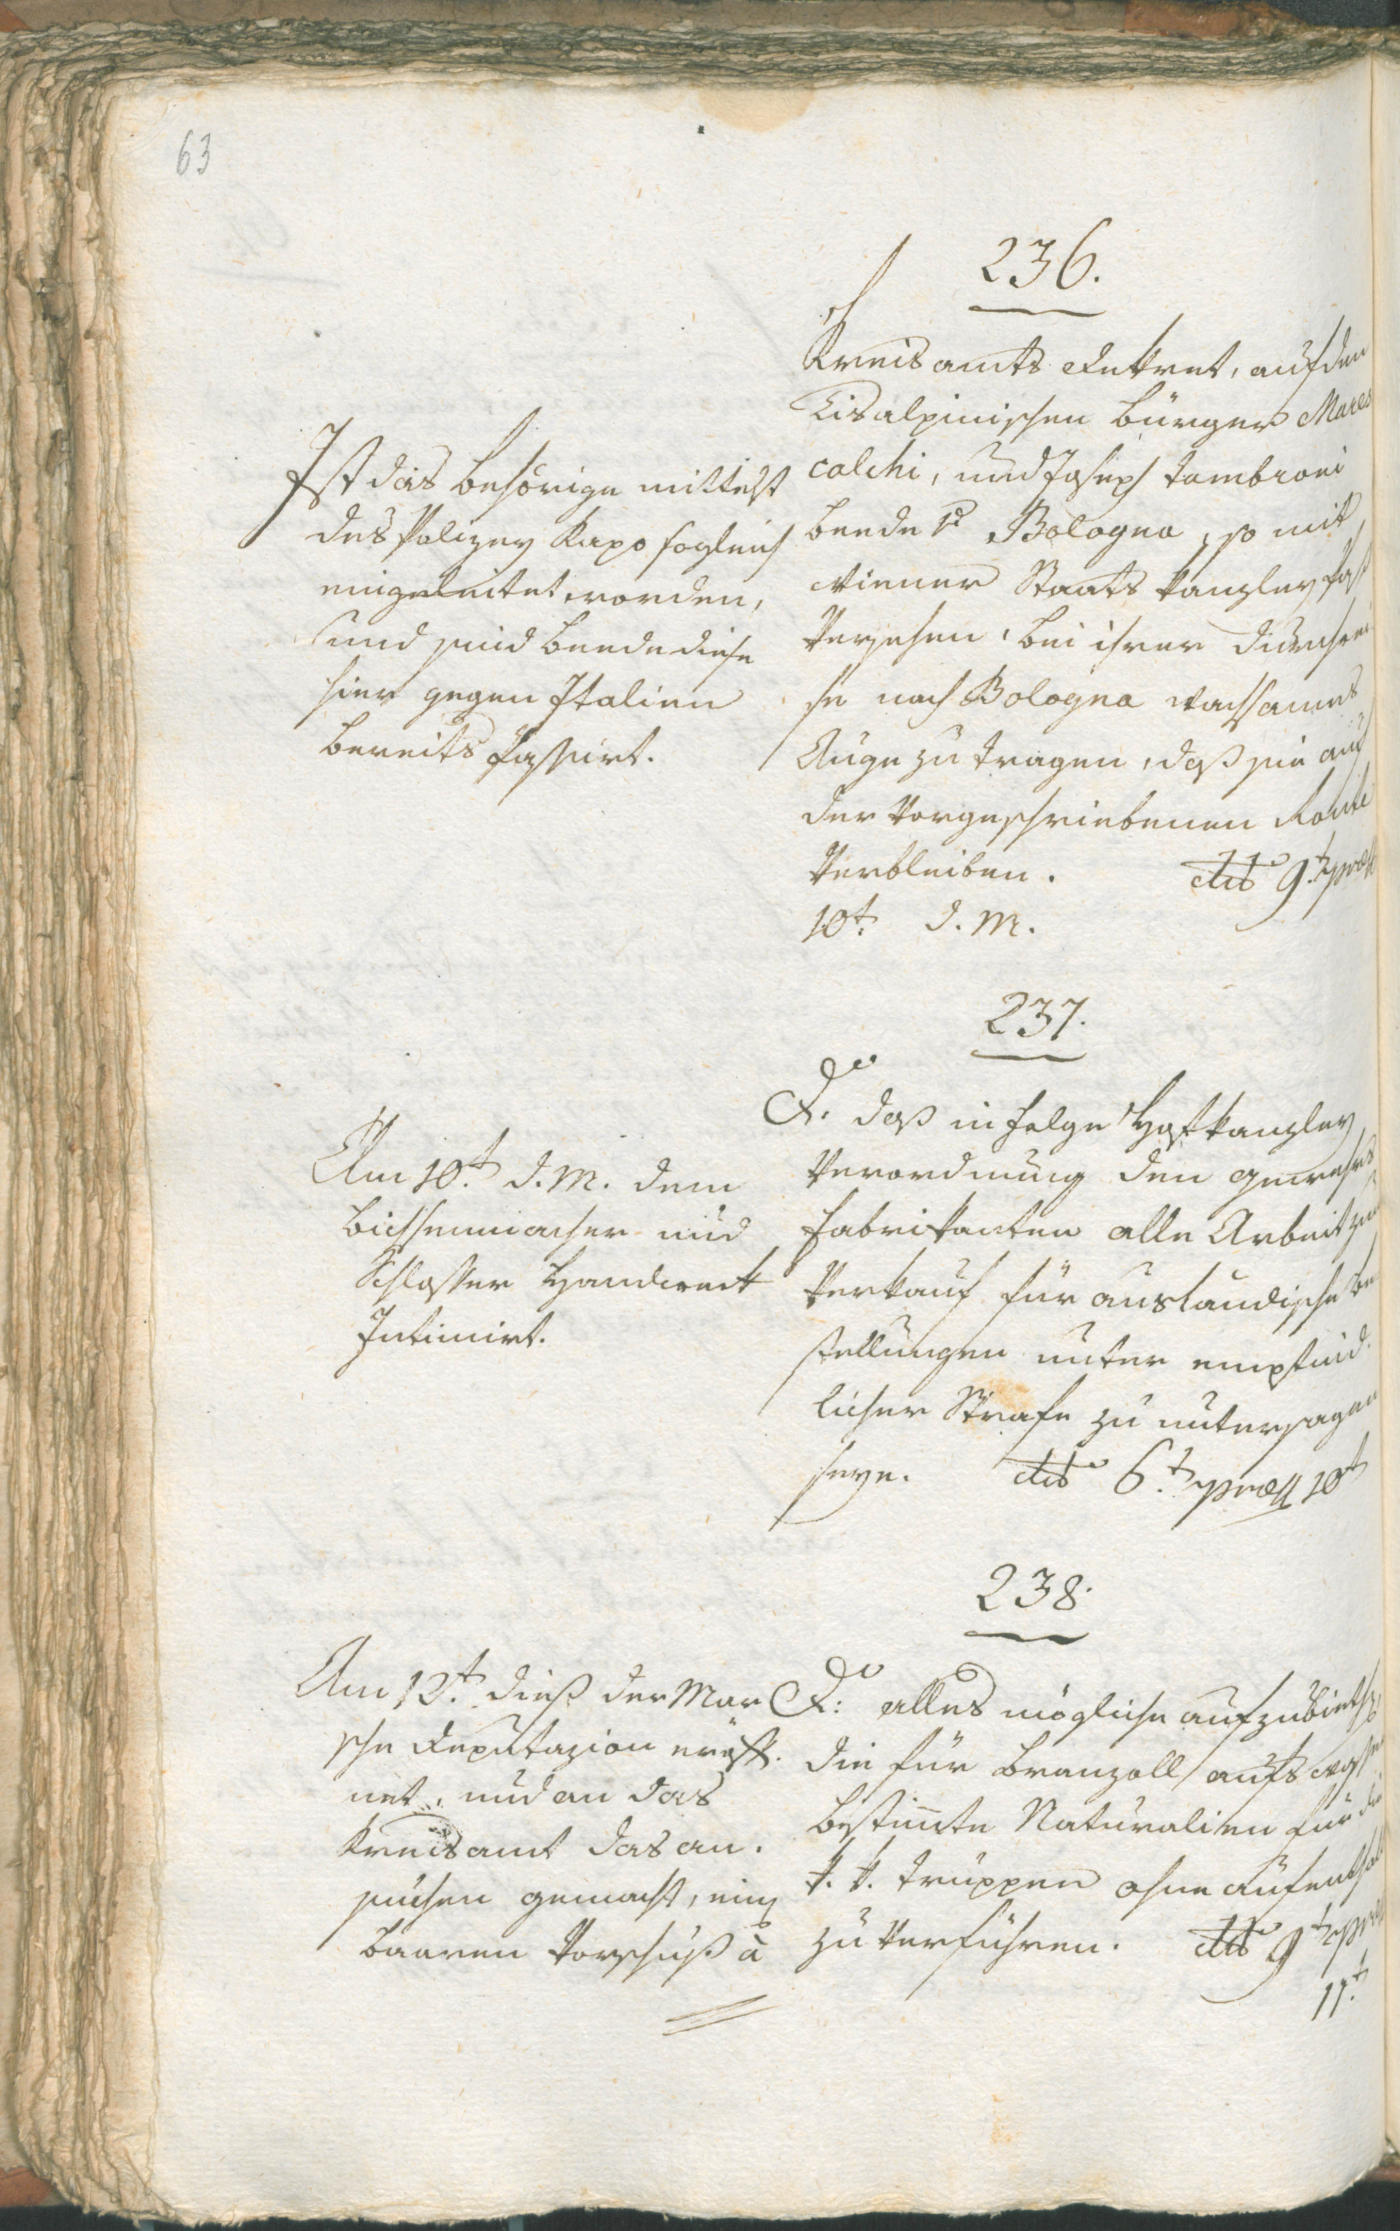 63
236.
Kreisamts Dekret, auf den
Cisalpinischen Bürger Mares
calchi, und Joseph Tambroni
beede Bologna, so mit
Wiener Staats Kanzley Paß
Versehen, bei ihrer Durchrei
se nach Bologna wachsames
Auge zu tragen, daß sie auf
der Vorgeschriebenen Route
Verbleiben. dto 9t. præs
10t. d. M.
Ist das behörige mittelst
des Polizey Kapo sogleich
eingeleitet worden,
und sind beede diese
hier gegen Italien
bereits passirt.
237.
Do. daß in folge Hofkanzley
Verordnung den gewehrs
fabrikanten alle Arbeit zum
Verkauf für ausländische be
stellungen unter empfind.
licher Strafe zu untersagen
seye. dto 6t. præs 10t
Am 10t. d. M. dem
bichsenmacher und
Schlosser Handwerk
Intimirt.
238.
Do. alles mögliche aufzubiethen,
die für Branzoll aufs
bestimmte Naturalien für die
k. k. truppen ohne aufenthalt
zu Verführen. dto 9t præs
11t.
Am 12t. dieß der Mar
sche Deputazion eröff.
net, und an das
Kreisamt das an.
suchen gemacht, eine
baaren Vorschuß à